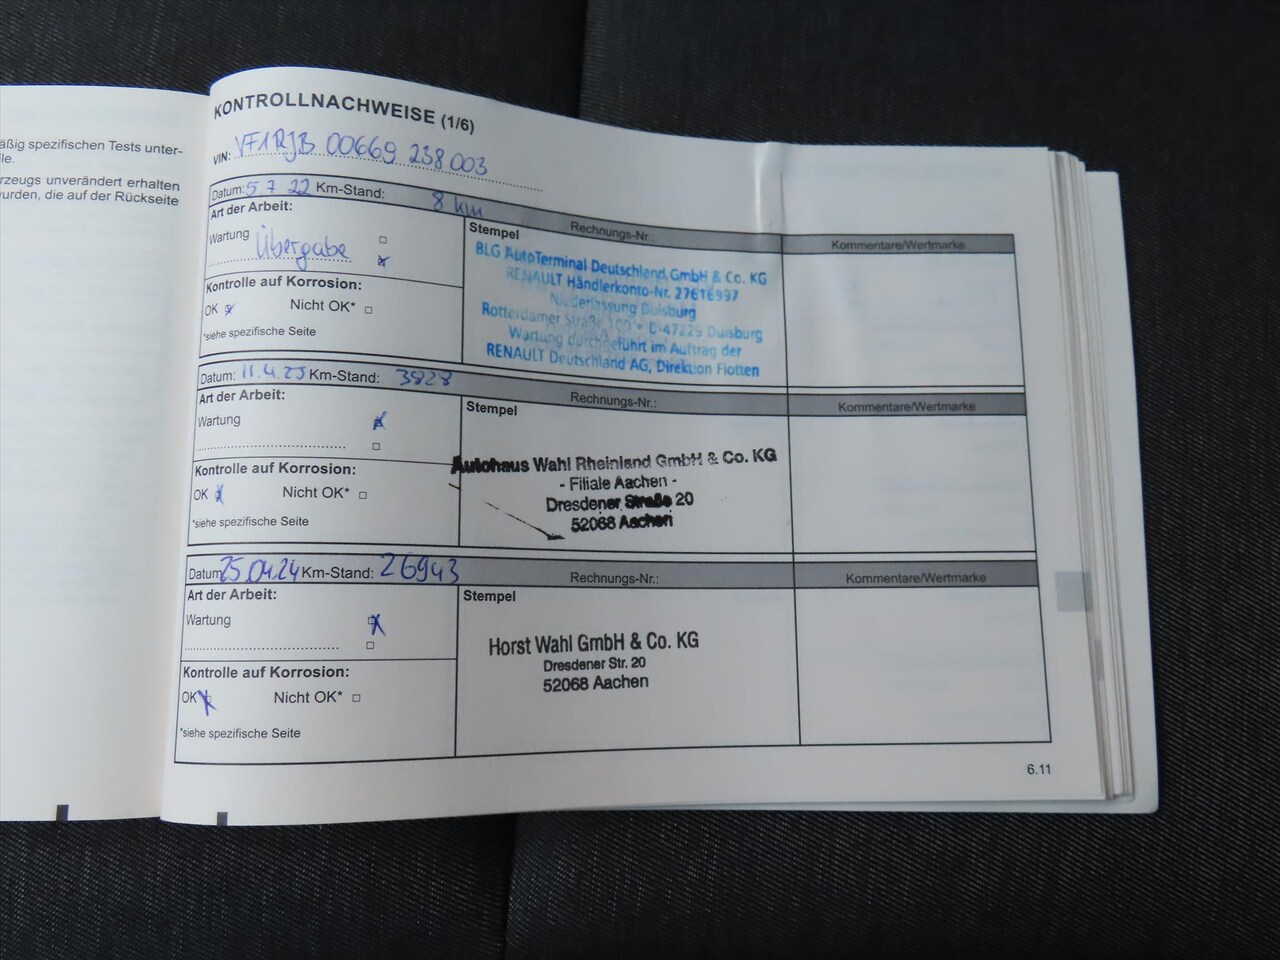 äßig spezifischen Tests unter-
le.
rzeugs unverändert erhalten
wurden, die auf der Rückseite
KONTROLLNACHWEISE (1/6)
VIN: VF1RJB 00669 238 003
Datum: 5.7 22 Km-Stand: 8 km
Art der Arbeit:
Wartung
Übergabe
Kontrolle auf Korrosion:
OK Nicht OK*
*siehe spezifische Seite
Stempel
Rechnungs-Nr.:
Kommentare/Wertmarke
BLG AutoTerminal Deutschland GmbH & Co. KG
RENAULT Händlerkonto-Nr. 27616997
Niederlassung Duisburg
Rotterdamer Straße 100 • D-47229 Duisburg
Wartung durchgeführt im Auftrag der
RENAULT Deutschland AG, Direktion Flotten
Datum: 11.4.23 Km-Stand: 3828
Art der Arbeit:
Wartung
Kontrolle auf Korrosion:
OK Nicht OK*
*siehe spezifische Seite
Stempel
Rechnungs-Nr.:
Kommentare/Wertmarke
Autohaus Wahl Rheinland GmbH & Co. KG
- Filiale Aachen -
Dresdener Straße 20
52068 Aachen
Datum 25.04.24 Km-Stand: 26943
Art der Arbeit:
Wartung
Kontrolle auf Korrosion:
OK Nicht OK*
*siehe spezifische Seite
Stempel
Rechnungs-Nr.:
Kommentare/Wertmarke
Horst Wahl GmbH & Co. KG
Dresdener Str. 20
52068 Aachen
6.11